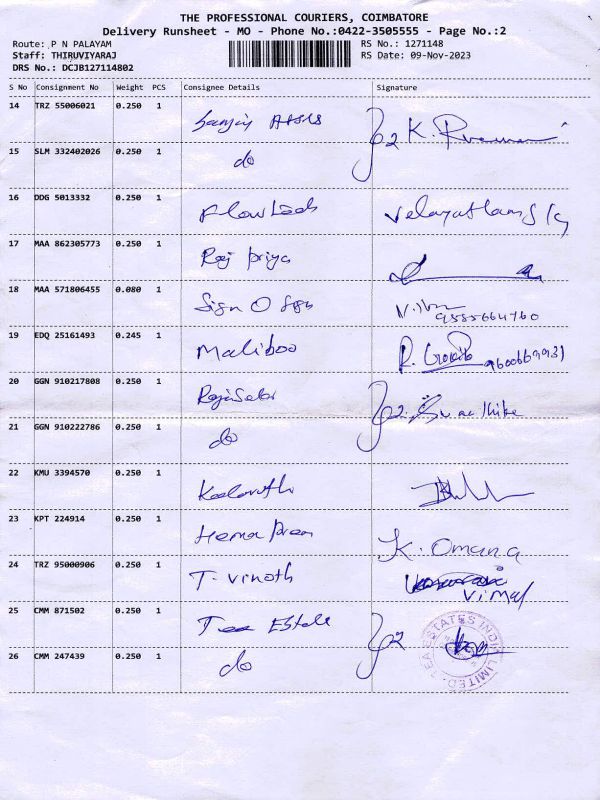 THE PROFESSIONAL COURIERS, COIMBATORE
Delivery Runsheet - MO - Phone No.:0422-3505555 - Page No.:2
Route: P N PALAYAM RS No.: 1271148
Staff: THIRUVIYARAJ RS Date: 09-Nov-2023
DRS No.: DCJB127114802
S No Consignment No Weight PCS Consignee Details Signature
14 TRZ 55006021 0.250 1
15 SLM 332402026 0.250 1 do 2 K.
16 DDG 5013332 0.250 1
17 MAA 862305773 0.250 1 Raj priya
18 MAA 571806455 0.080 1 Sign O Sign
19 EDQ 25161493 0.245 1 Maliboo R.
20 GGN 910217808 0.250 1
21 GGN 910222786 0.250 1 do 2
22 KMU 3394570 0.250 1
23 KPT 224914 0.250 1 Hema K. Omana
24 TRZ 95000906 0.250 1 T. Vinoth Vimal
25 CMM 871502 0.250 1 Tea Estate 2
26 CMM 247439 0.250 1 do TEA ESTATES INDIA LIMITED